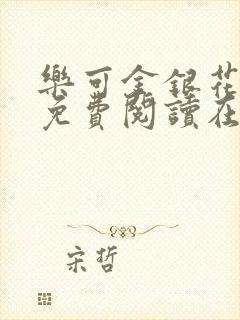 樂可金銀花
免費閱讀在
宋哲